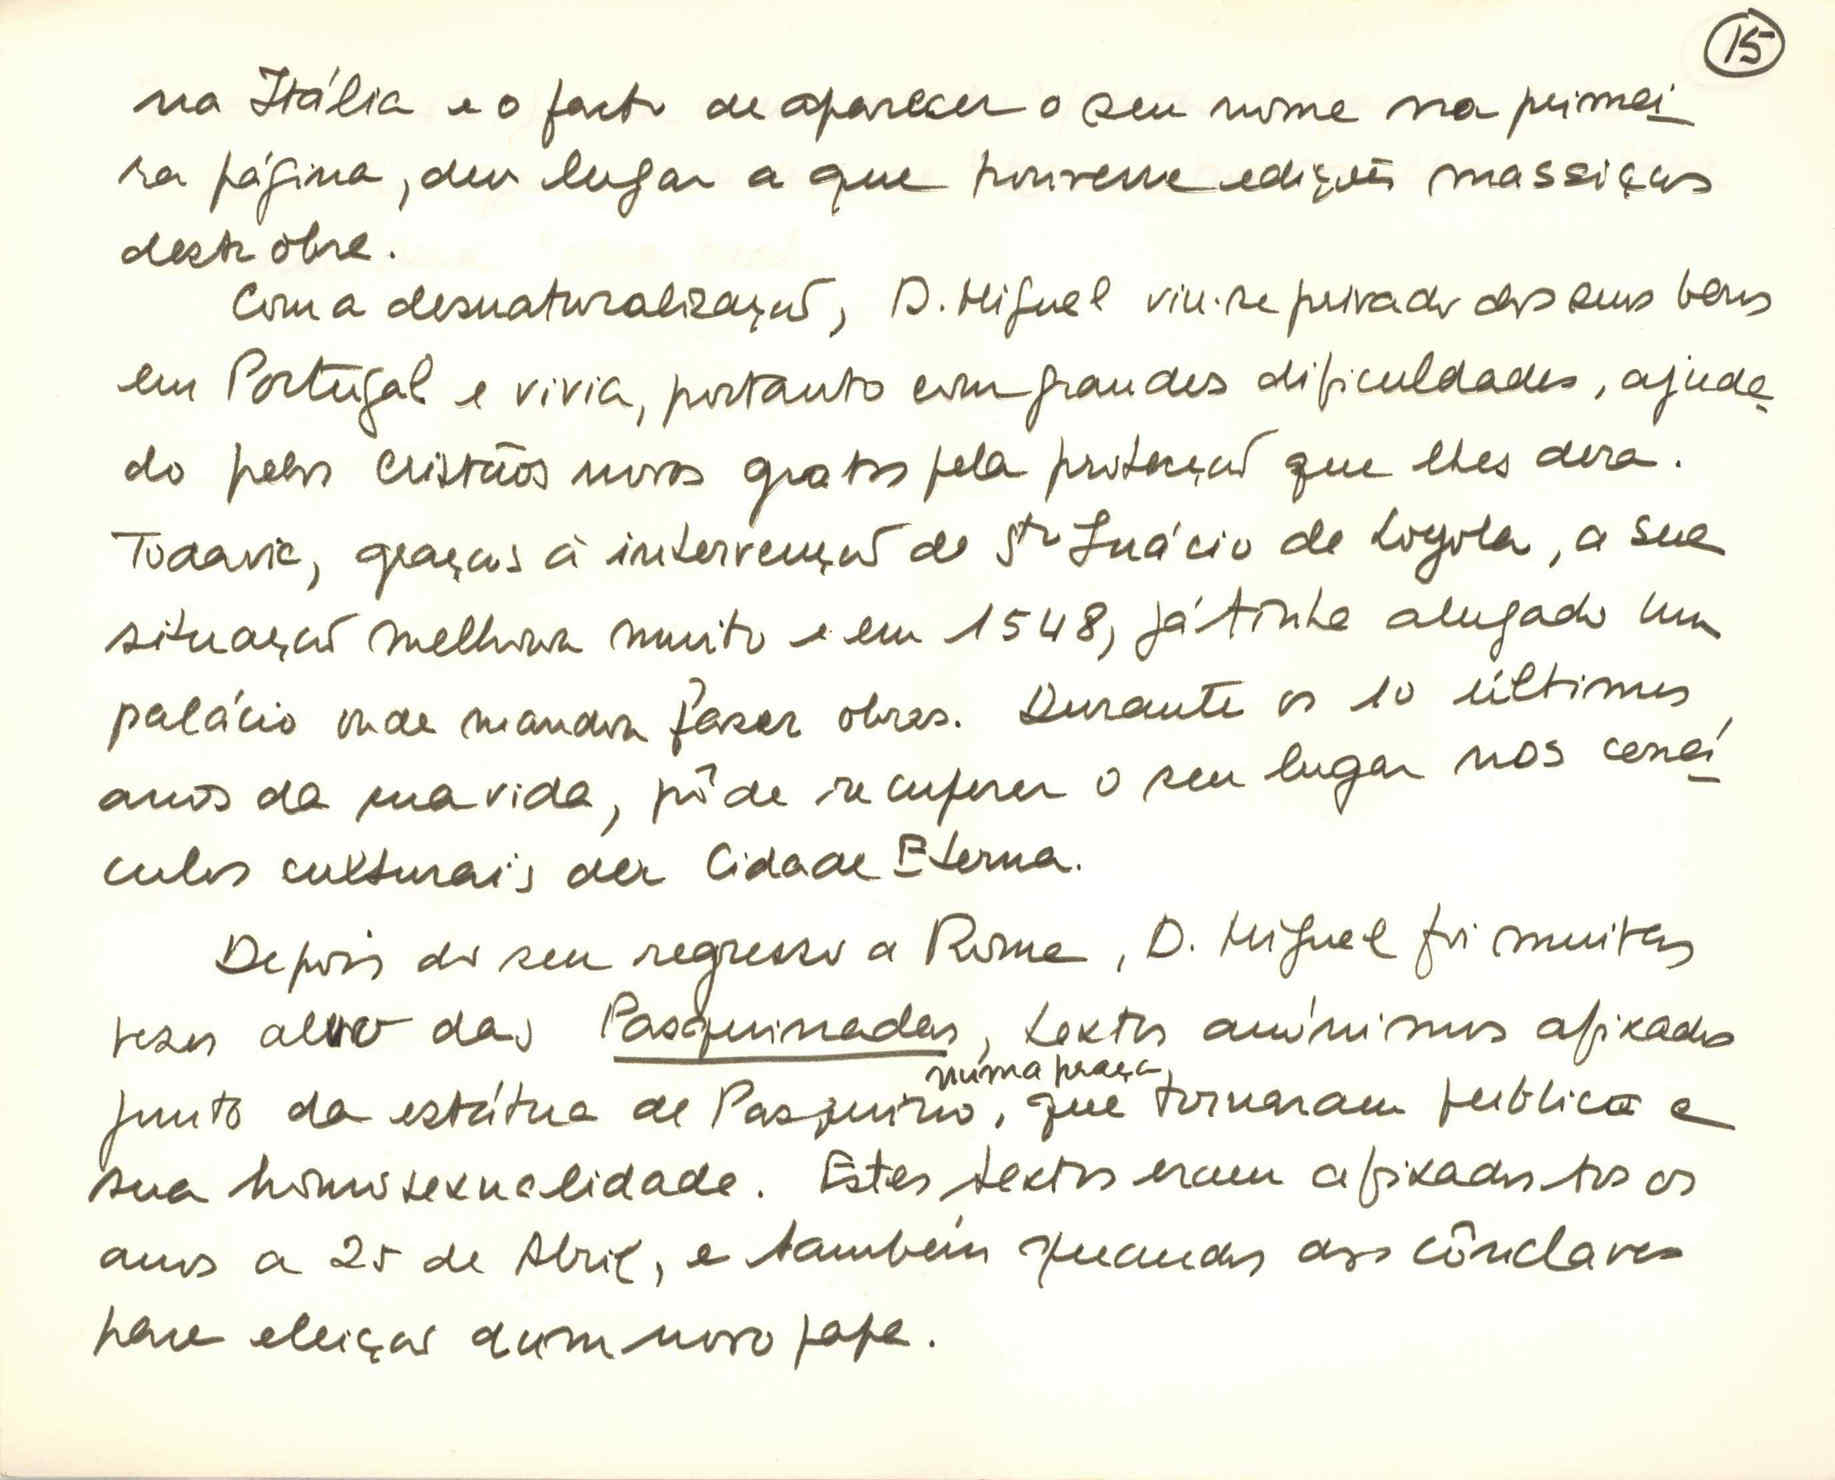 15
na Itália e o facto de aparecer o seu nome na primei
ra página, deu lugar a que houvesse edições massiças
desta obra.
Com a desnaturalização, D. Miguel viu-se privado dos seus bens
em Portugal e vivia, portanto com grandes dificuldades, ajuda
do pelos cristãos novos gratos pela protecção que lhes dera.
Todavia, graças à intervenção de Stº Inácio de Loyola, a sua
situação melhora muito e em 1548, já tinha alugado um
palácio onde mandou fazer obras. Durante os 10 últimos
anos da sua vida, pôde recuperar o seu lugar nos cená
culos culturais da Cidade Eterna.
Depois do seu regresso a Roma, D. Miguel foi muitas
vezes alvo das Pasquinadas, textos anónimos afixados
numa praça,
junto da estátua de Pasquino, que tornaram publica a
sua homosexualidade. Estes textos eram afixados tos os
anos a 25 de Abril, e também quando dos cônclaves
para eleição dum novo papa.